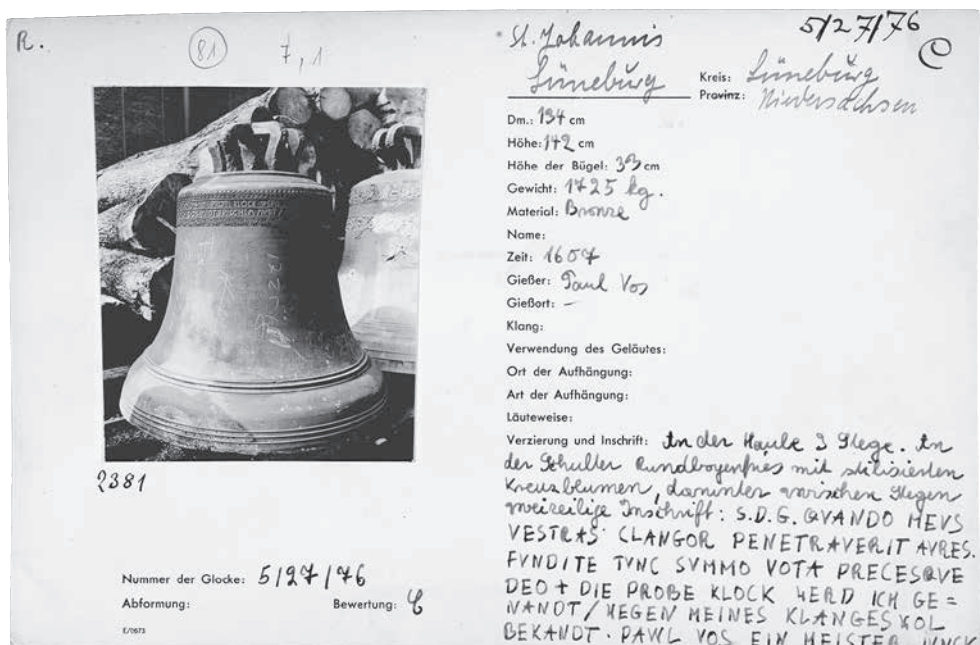 R.
81
7,1
St. Johannis
Lüneburg
5/27/76
C
Kreis: Lüneburg
Provinz: Niedersachsen
Dm.: 134 cm
Höhe: 142 cm
Höhe der Bügel: 33 cm
Gewicht: 1725 kg.
Material: Bronze
Name:
Zeit: 1607
Gießer: Paul Vos
Gießort: –
Klang:
Verwendung des Geläutes:
Ort der Aufhängung:
Art der Aufhängung:
Läuteweise:
Verzierung und Inschrift: An der Haube 3 Stege. An
der Schulter Rundbogenfries mit stilisierten
Kreuzblumen, darunter zwischen Stegen
zweizeilige Inschrift: S.D.G. QVANDO MEVS
VESTRAS CLANGOR PENETRAVERIT AVRES.
FVNDITE TVNC SVMMO VOTA PRECESQVE
DEO + DIE PROBE KLOCK WERD ICH GE=
NANDT / WEGEN MEINES KLANGES WOL
BEKANDT. PAWL VOS EIN MEISTER
2381
Nummer der Glocke: 5/27/76
Abformung:
Bewertung: C
E/0673